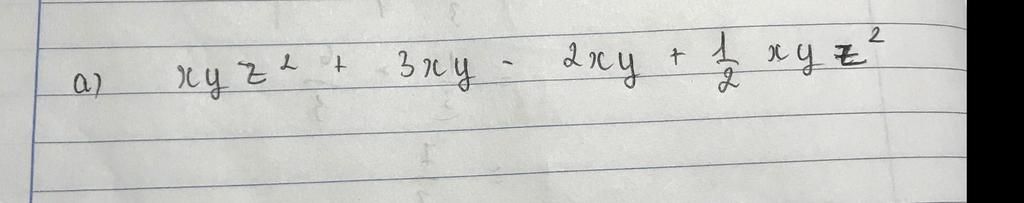 a) xyz² + 3xy - 2xy + 1/2 xyz²